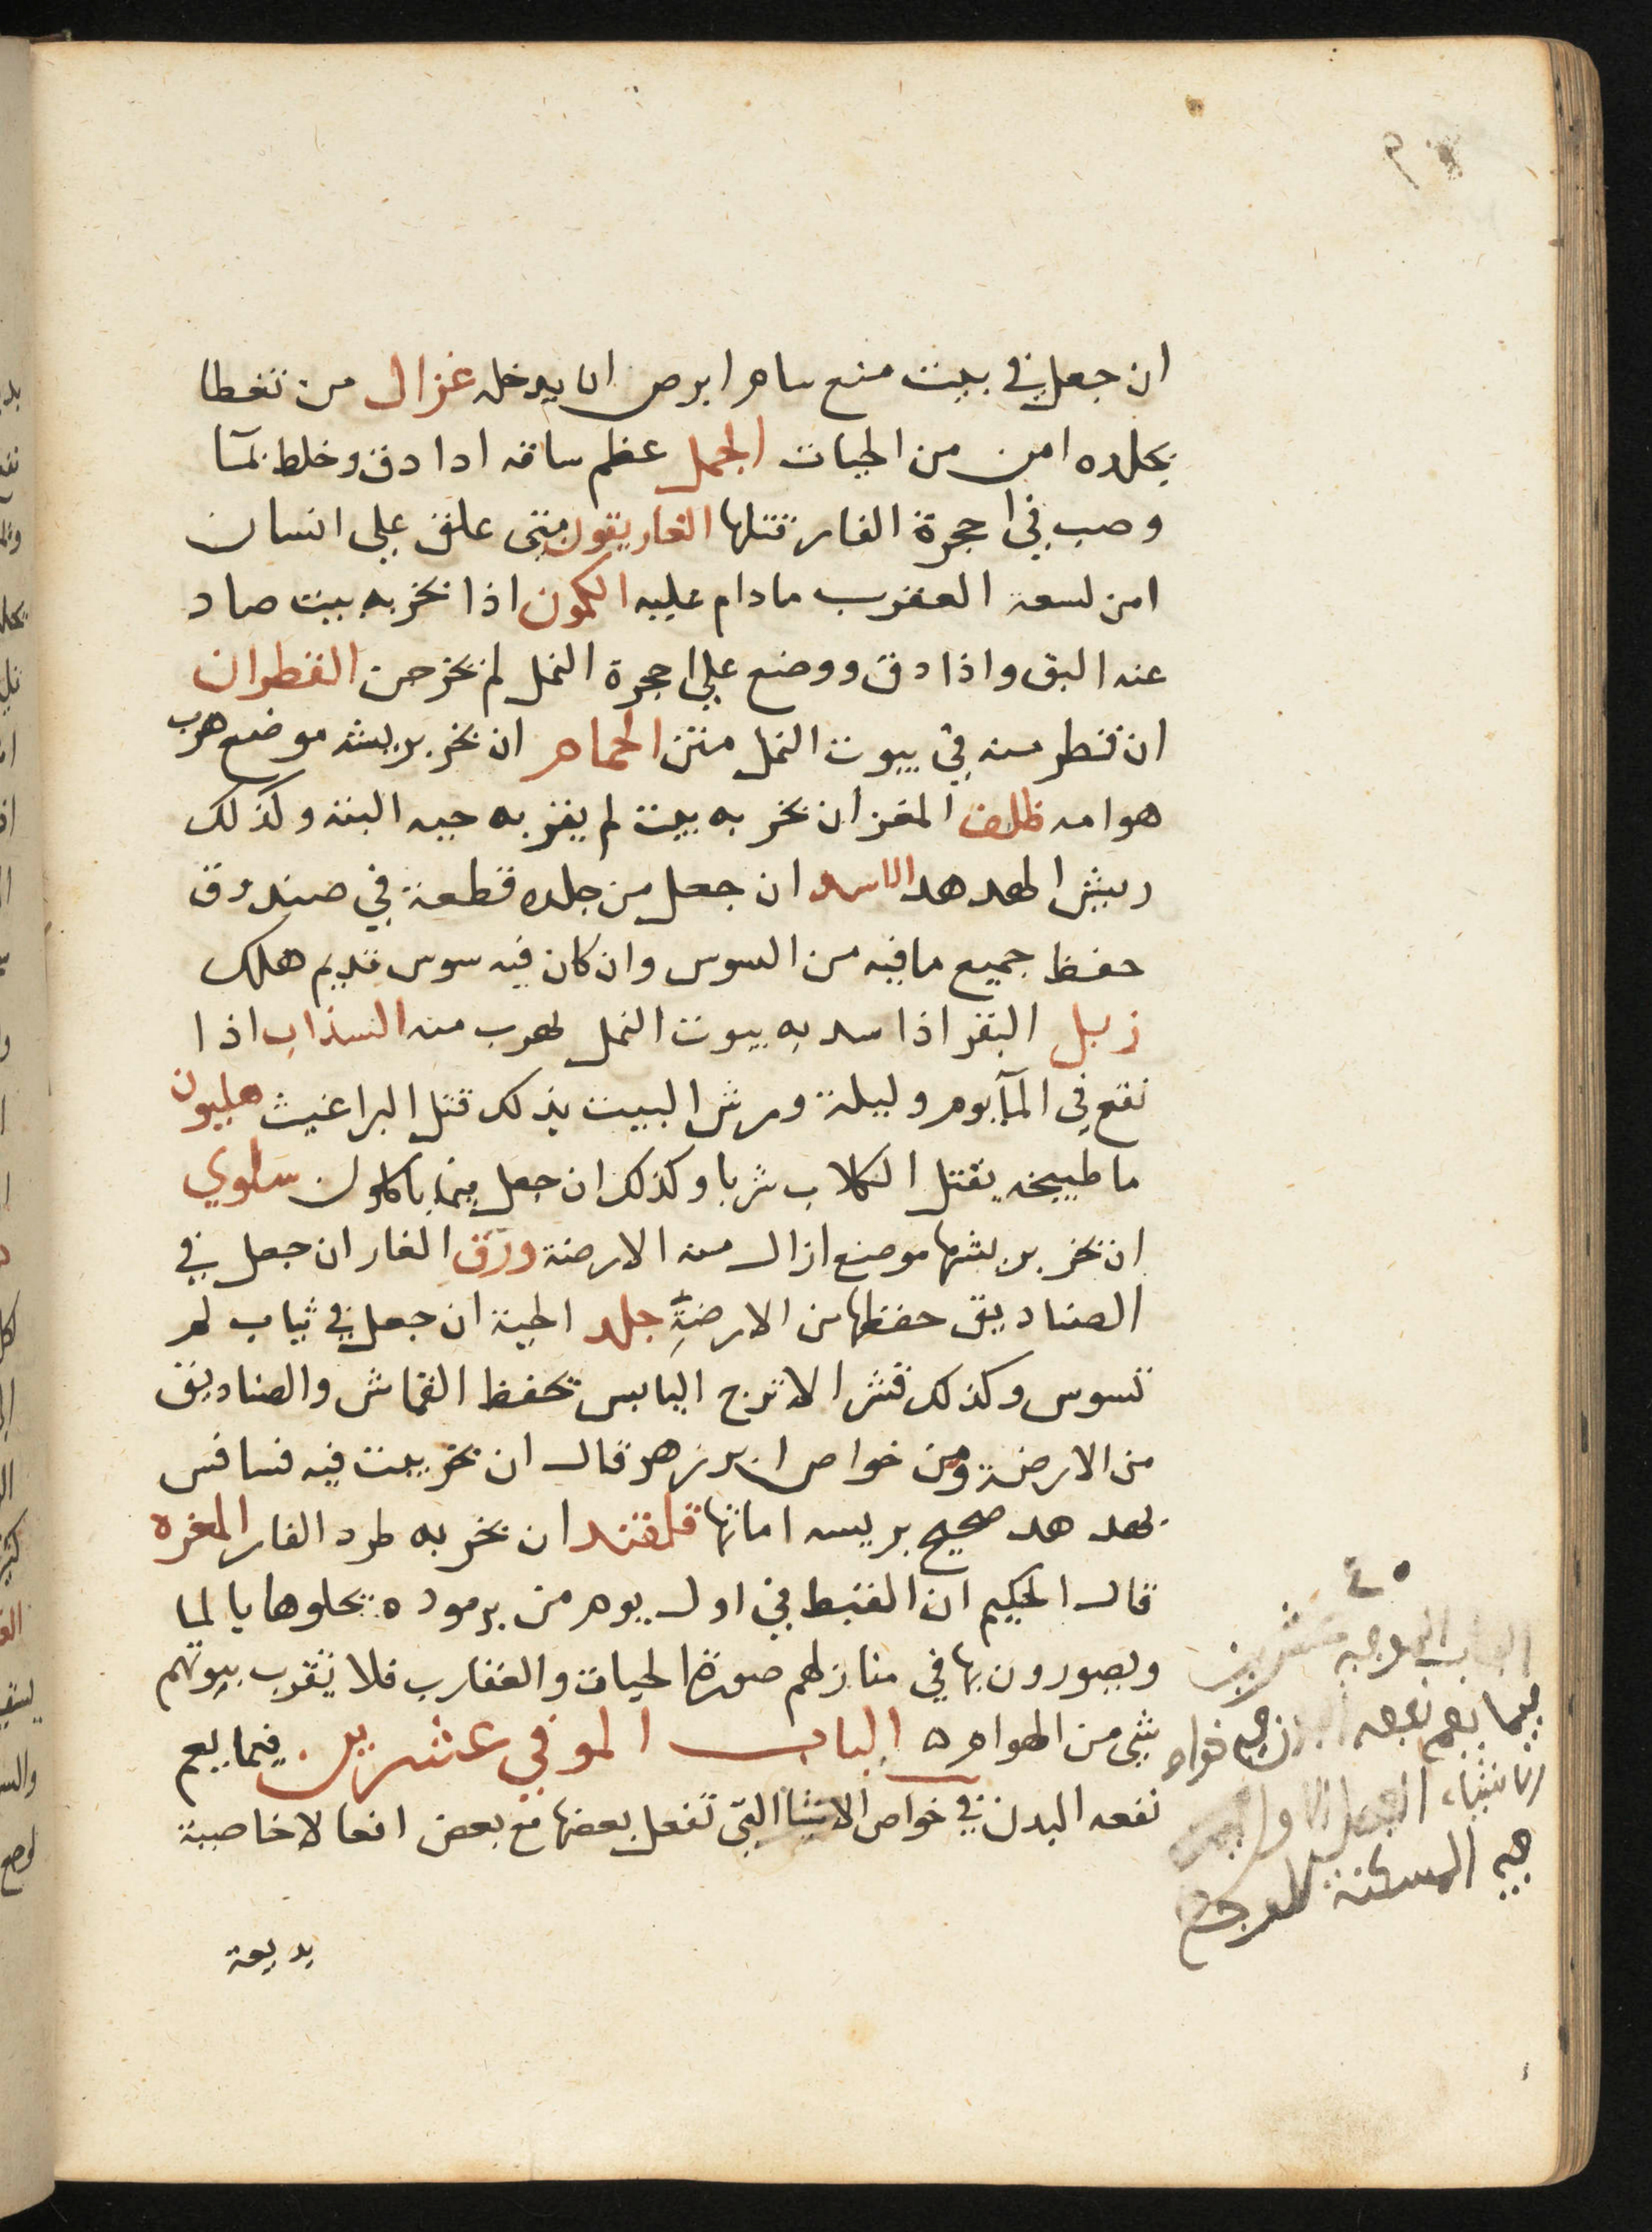 ان جعل في بيت منع سام ابرص ان يدخله غزال من تغطا
بجلده امن من الحيات الجمل عظم ساقه اذا دق وخلط بمآ
وصب في اجحرة الفار قتلها الغاريقون متى علق على انسان
امن لسعة العقرب مادام عليه الكمون اذا بخر به بيت صاد
عنه البق واذا دق ووضع علي اجحرة النمل لم تخرجن القطران
ان قطر منه في بيوت النمل متن الحمام ان بخر بريشه موضع هرب
هوامه ظلف المعز ان بخر به بيت لم يقر به حيه البتة وكذلك
ريش الهدهد الاسد ان جعل من جلده قطعة في صندوق
حفظ جميع مافيه من السوس وان كان فيه سوس قديم هلك
زبل البقر اذا سد به بيوت النمل لهرب منه السذاب اذا
نقع في المآ يوم وليلة ورش البيت بذلك قتل البراغيث هليون
ما طبيخه يقتل الكلاب شربا وكذلك ان جعل فيما ياكلون سلوي
ان بخر بريشها موضع ازال منه الارضة ورق الغار ان جعل في
الصناديق حفظها من الارضة جلد الحية ان جعل في ثياب لم
تسوس وكذلك قشر الاترج اليابس يحفظ القماش والصناديق
من الارضة ومن خواص ابن زهر قال ان بخر بيت فيه فسافس
بهدهد صحيح بريشه اماتها قلقند ان بخر به طرد الفار المغره
قال الحكيم ان القبط في اول يوم من برموده يحلوها بالما
ويصورون بها في منازلهم صورة الحيات والعقارب فلا يقرب بيوتهم
شي من الهوام ه الباب الموفي عشرين فيما يعم
نفعه البدن في خواص الاشيا التي تفعل بعضها مع بعض افعالا خاصية
بديعة